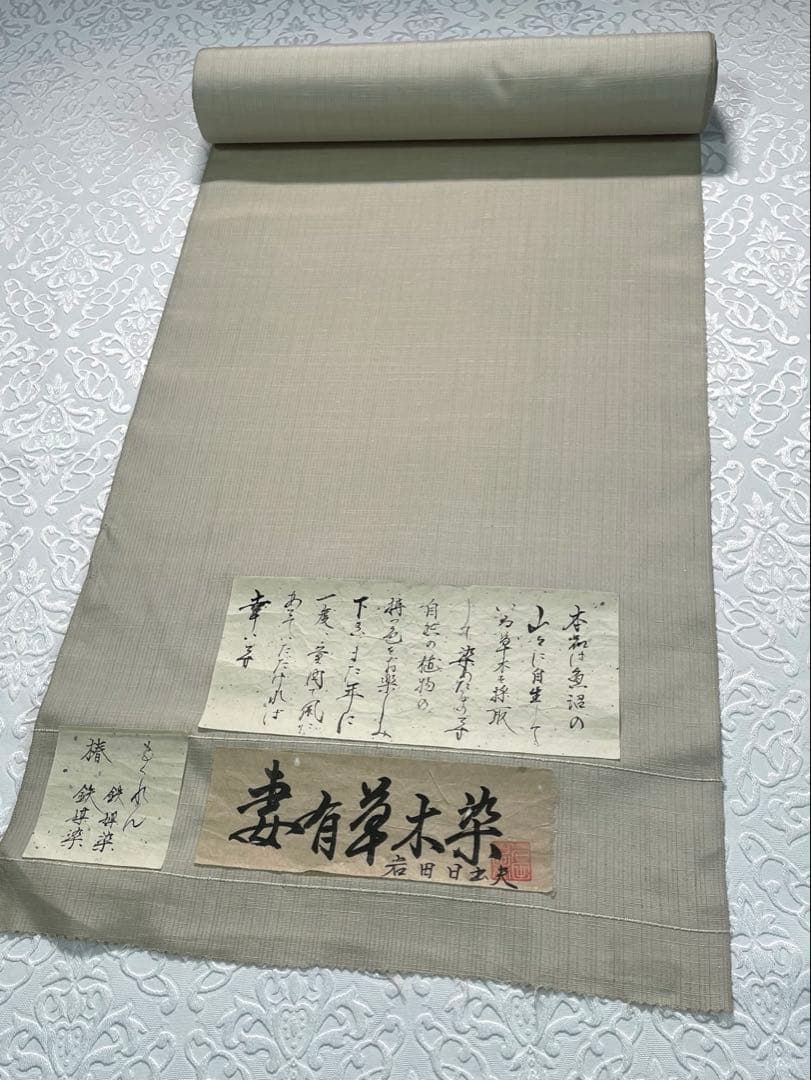 本品は魚沼の
山々に自生して
いる草木を採取
して染めたものです
自然の植物の
持つ色をお楽しみ
下さいまた年に
一度、室内で風に
あてていただければ
幸いです
もくれん 鉄媒染
椿 鉄媒染
妻有草木染
岩田日出夫